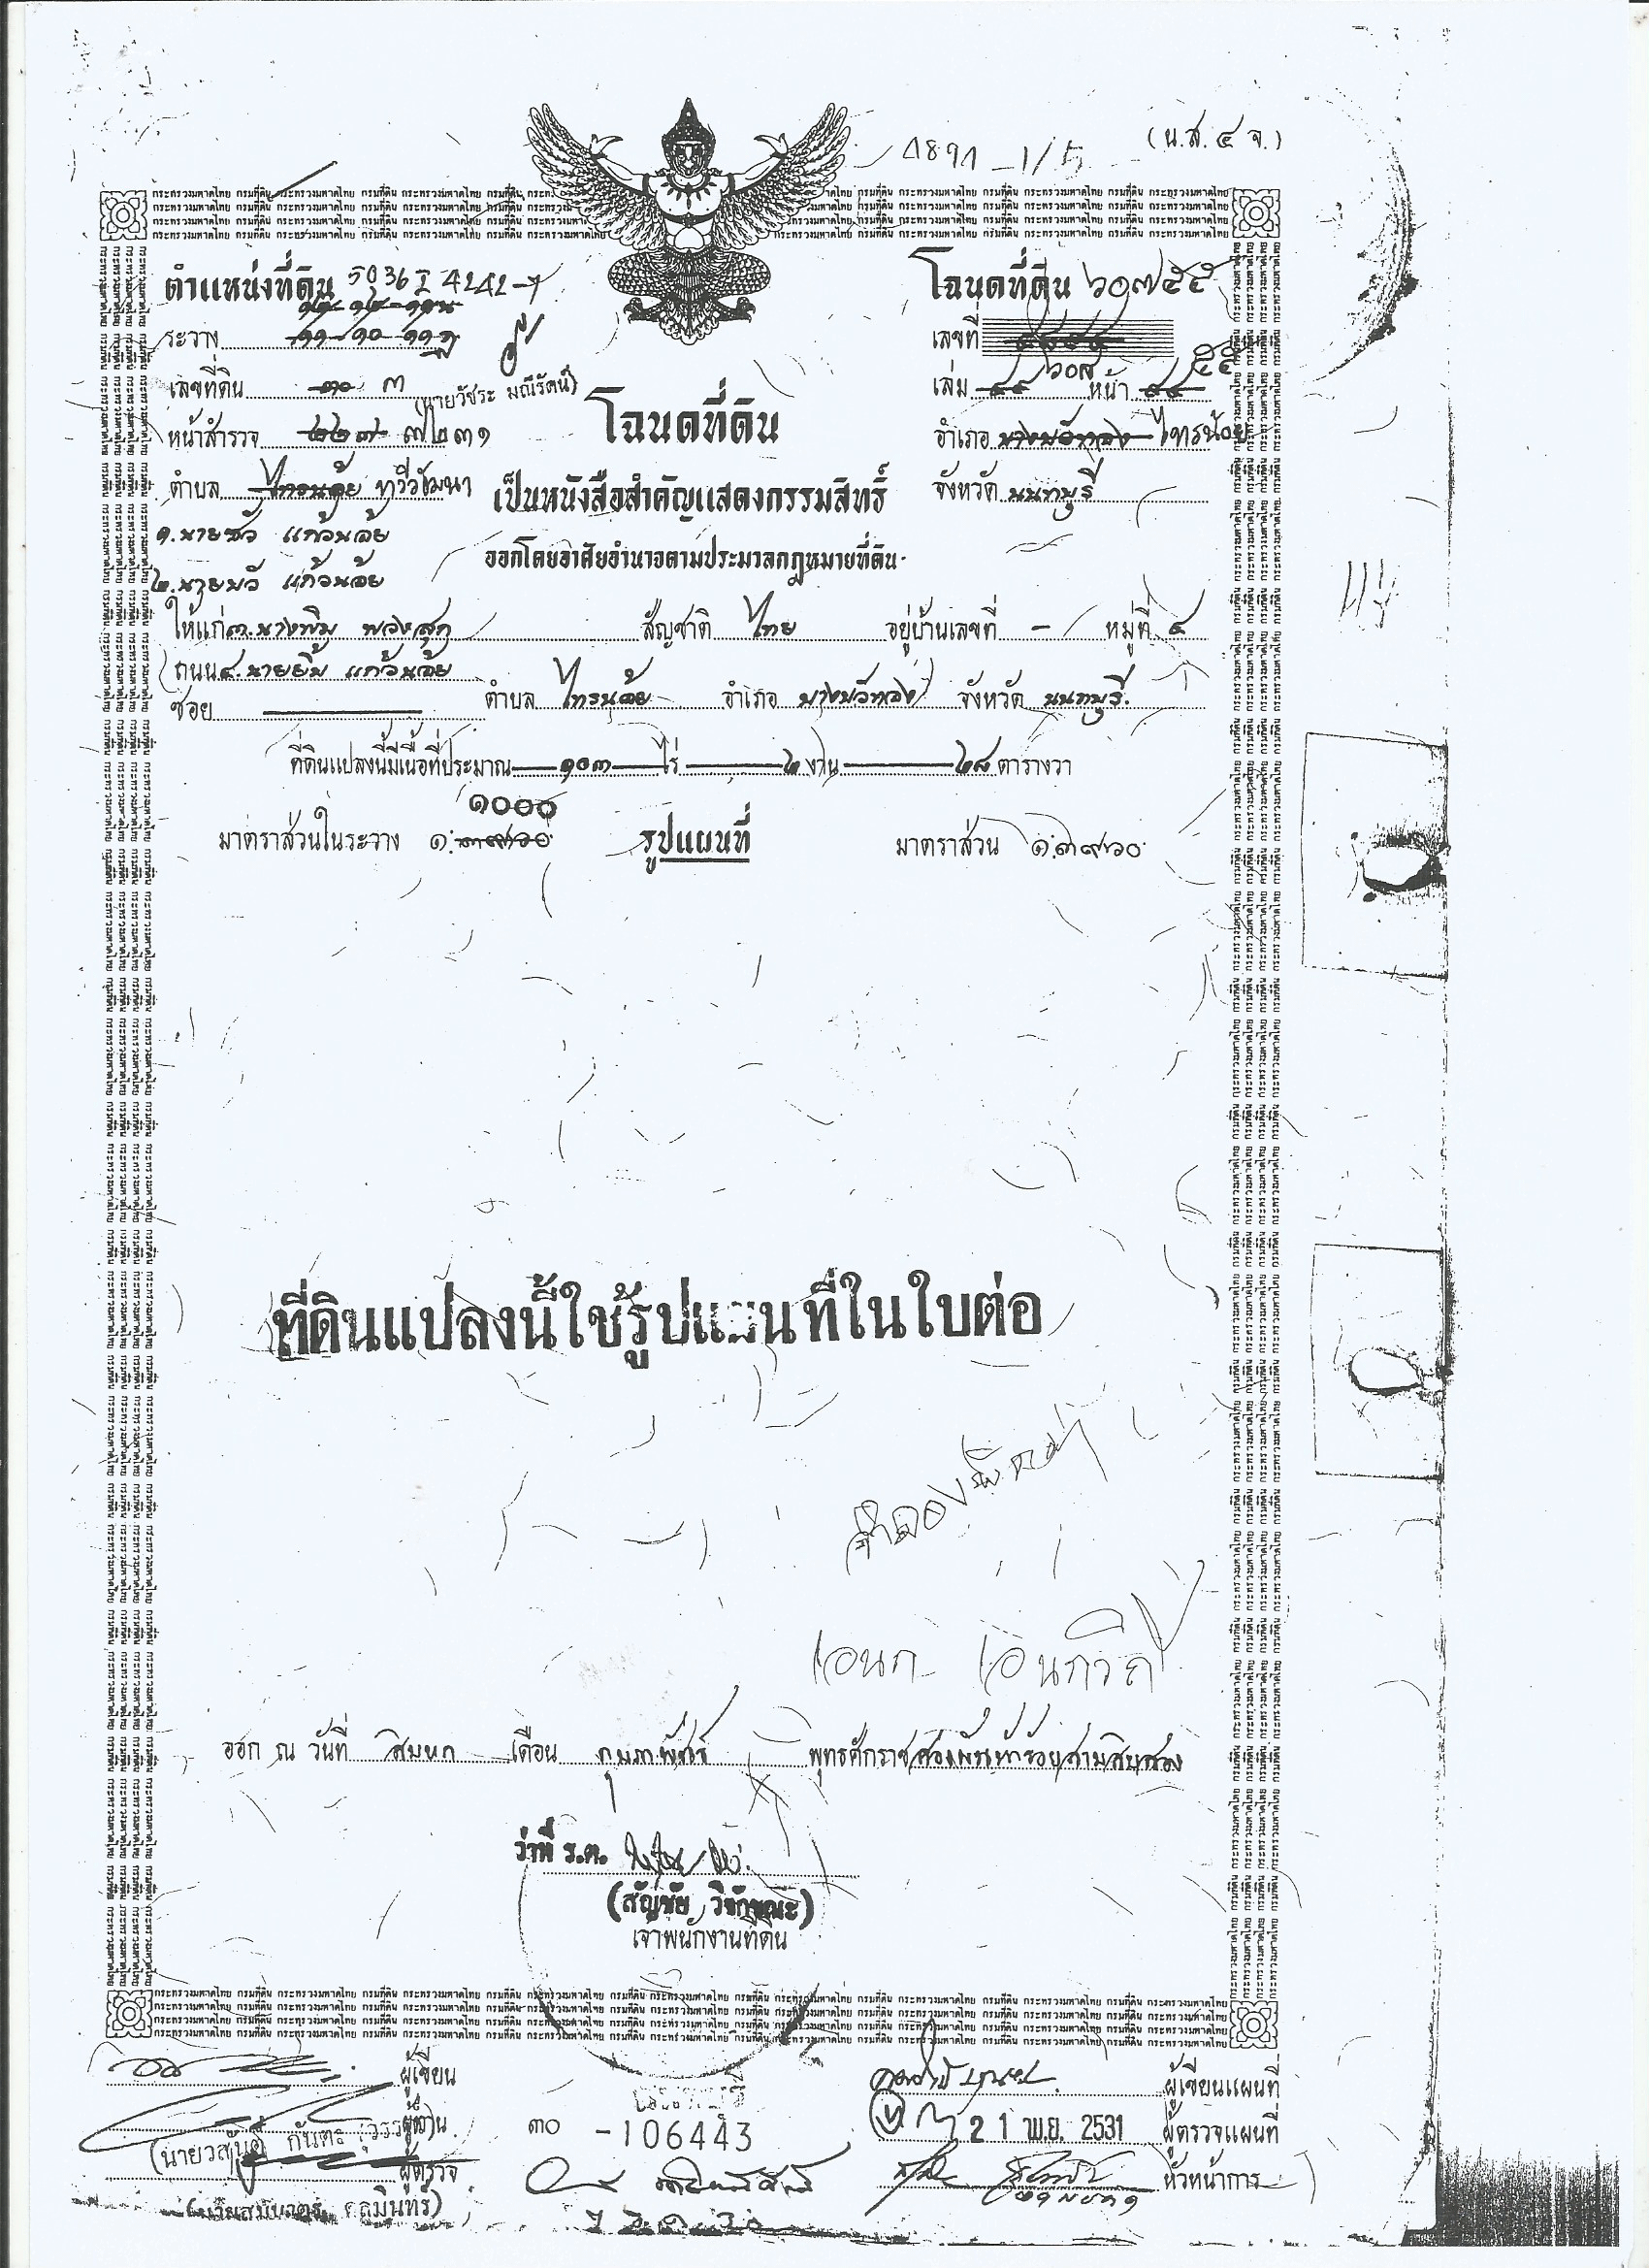 (น.ส.๔ จ.)
ตำแหน่งที่ดิน 5036 I 4242-7
โฉนดที่ดิน ๖๐๗๕๕
ระวาง
เลขที่
(นายวัชระ มณีรัตน์)
เลขที่ดิน ๓๐ ๓
โฉนดที่ดิน
เล่ม ๔๔ ๖๐๘ หน้า ๔๔ ๕๕
หน้าสำรวจ ๒๒๗ ๗๒๓๑
อำเภอ บางบัวทอง ไทรน้อย
ตำบล ไทรน้อย ทวีวัฒนา
เป็นหนังสือสำคัญแสดงกรรมสิทธิ์
จังหวัด นนทบุรี
๑.นายชัว แก้วน้อย
ออกโดยอาศัยอำนาจตามประมวลกฎหมายที่ดิน
๒.นายบัว แก้วน้อย
ให้แก่ ๓.นางพิม พวงสุก สัญชาติ ไทย อยู่บ้านเลขที่ - หมู่ที่ ๔
ถนน ๔.นายยิ้ม แก้วน้อย
ซอย ตำบล ไทรน้อย อำเภอ บางบัวทอง จังหวัด นนทบุรี
ที่ดินแปลงนี้มีเนื้อที่ประมาณ ๑๐๓ ไร่ ๒ งาน ๒๘ ตารางวา
๑๐๐๐
มาตราส่วนในระวาง ๑:๓๙๖๐ รูปแผนที่ มาตราส่วน ๑:๓๙๖๐
ที่ดินแปลงนี้ใช้รูปแผนที่ในใบต่อ
ออก ณ วันที่ สิบหก เดือน กุมภาพันธ์ พุทธศักราช สองพันห้าร้อยสามสิบสอง
ว่าที่ ร.ต.
(สัญชัย วิจักขณะ)
เจ้าพนักงานที่ดิน
ผู้เขียน
ผู้เขียนแผนที่
ผู้ทาน
๓๐ -106443
21 พ.ย. 2531 ผู้ตรวจแผนที่
ผู้ตรวจ
หัวหน้าการ